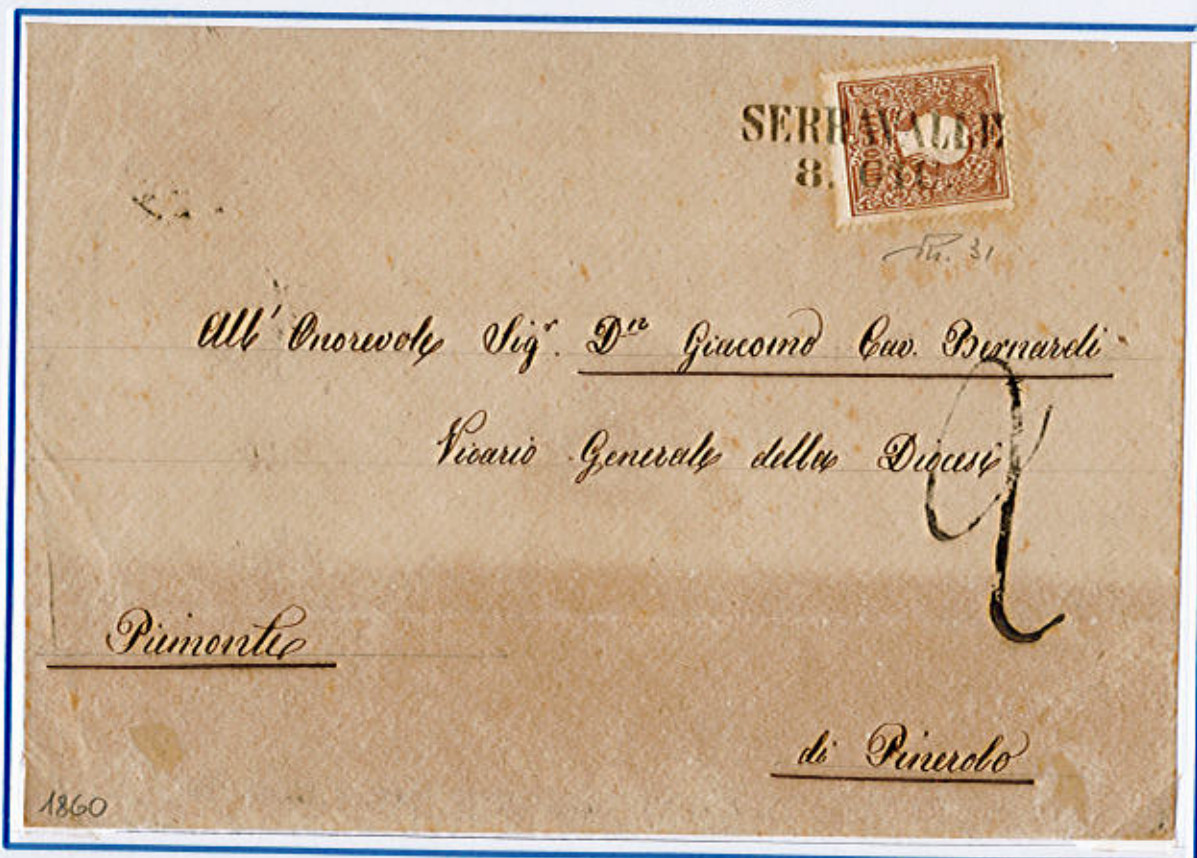 SERRAVALLE
8.
31
All' Onorevole Sigʳ. Dⁿ Giacomo Cav. Bernardi
Vicario Generale della Diocesi
2
Piemonte
di Pinerolo
1860